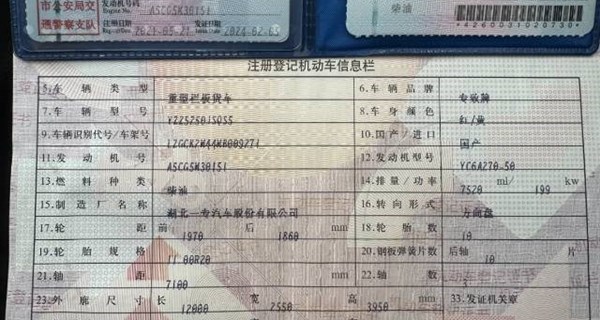 市公安局交
通警察支队
发动机号码
Engine No.
A5CG5M30151
注册日期
2021-05-21
发证日期
2024-02-05
柴油
*4260031020730*
注册登记机动车信息栏
5.车辆类型 重型栏板货车 6.车辆品牌 专致牌
7.车辆型号 8.车身颜色 红/黄
9.车辆识别代号/车架号 10.国产/进口 国产
11.发动机号 A5CG5M30151 12.发动机型号 YC6A270-50
13.燃料种类 柴油 14.排量/功率 7520 ml/ 199 kw
15.制造厂名称 湖北一专汽车股份有限公司 16.转向形式 方向盘
17.轮距 前 1970 后 1860 mm 18.轮胎数 10
19.轮胎规格 11.00R20 20.钢板弹簧片数 后轴 10 片
21.轴距 7100 mm 22.轴数 3
23.外廓尺寸 长 12000 宽 2550 高 3950 mm 33.发证机关章